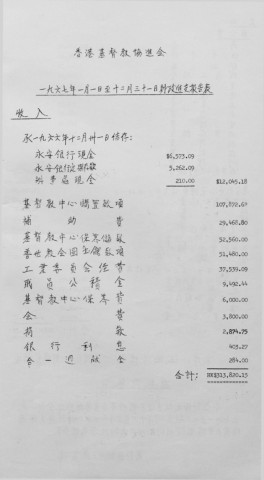 香港基督教協進會
一九六七年一月一日至十二月三十一日
收入
承一九六六年十二月卅一日結存:
永安銀行現金 $6,573.09
永安銀行定期存款 5,262.09
幹事處現金 210.00 $12,045.18
基督教中心購置款項
補助費 29,467.80
基督教中心 32,560.00
31,480.00
工業委員會經費 37,539.09
職員公積金 9,492.44
基督教中心 6,000.00
會費 3,800.00
捐款 2,874.75
銀行利息 403.27
合一週獻金 284.00
合計: HK$313,820.15